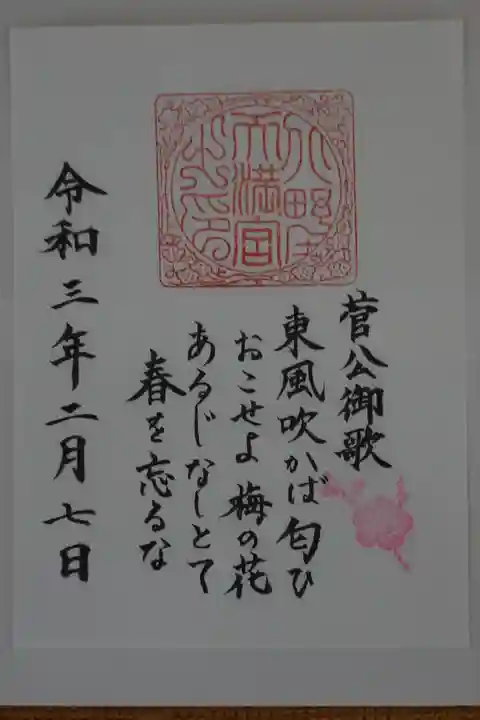 天満宮
之印
菅公御歌
東風吹かば匂ひ
おこせよ梅の花
あるじなしとて
春を忘るな
令和三年二月七日